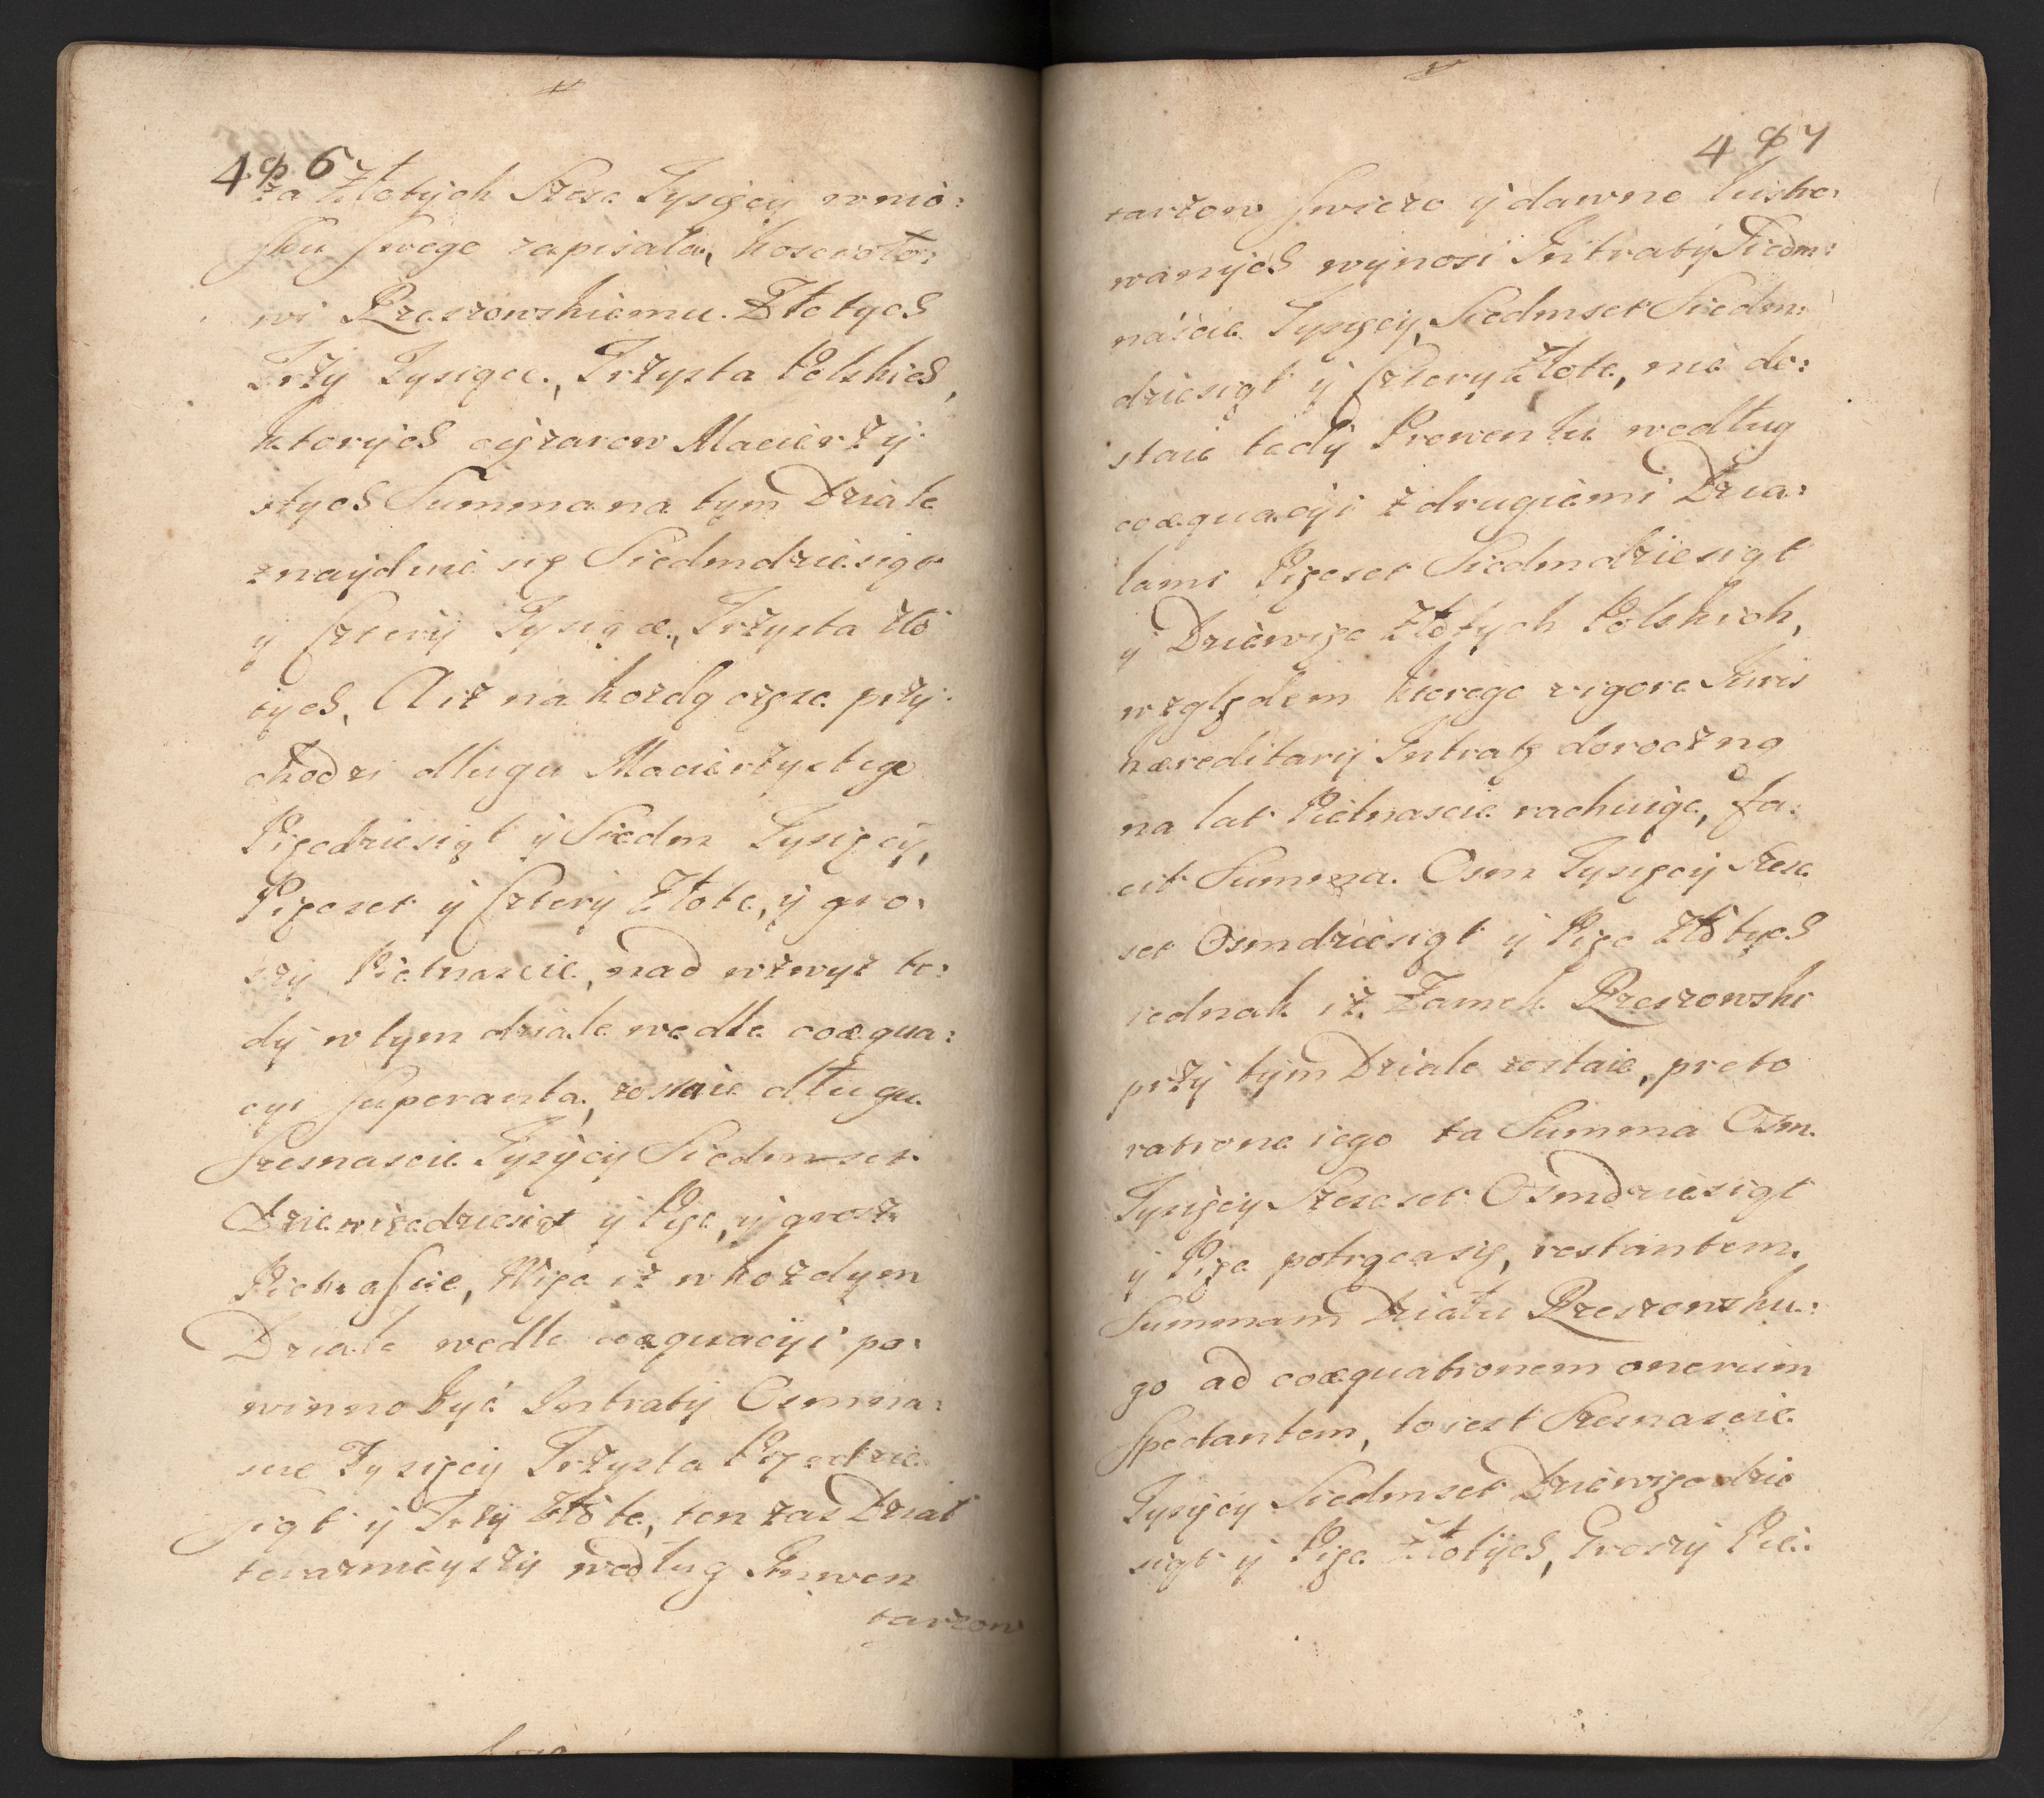 406
za Złotych Szesc Tysięcy wnio:
sku swego zapisała, koscioło:
wi Rzeszowskiemu Złotych
Trzy Tysiące, Trzysta Polskich,
ktorych cięzarow Macierzy
stych Summa na tym Dziale
znayduie się Siedmdziesiąt
y Cztery Tysiące, Trzysta Zło
tych, A iz na kozdą częsc przy
chodzi długu Macierzystego
Pięcdziesiąt y Siedm Tysięcy,
Pięcset y Cztery Złote, y gro:
szy Pietnascie, nad wzwyz te:
dy w tym dziale wedle coæqua:
cyi superanta, zostaie długu
Szesnascie Tysięcy Siedmset
Dziewięcdziesiąt y Pięc, y groszy
Pietnascie, Więc iz w kozdym
Dziale wedle coæquacyi po:
winno być Intraty Osmna:
scie Tysięcy Trzysta Pięcdzie
siąt y Trzy Złote, ten zas Dział
teraznieyszy według Inwen
tarzow
407
tarzow swiezo y dawno lustro:
wanych wynosi Intraty Siedm:
nascie Tysięcy, Siedmset Siedm:
dziesiąt y Cztery Złote, nie do:
staie tedy Prowentu według
coæquacyi z drugiemi Dzia:
łami Pięcset Siedmdziesiąt
y Dziewięc Złotych Polskich,
względem ktorego vigore Iuris
hæreditarij Intratę doroczną
na lat Pietnascie rachuiąc, fa:
cit Summa. Osm Tysięcy Szesc
set Osmdziesiąt y Pięc Złotych
iednak iz Zamek Rzeszowski
przy tym Dziale zostaie, przeto
ratione iego ta Summa Osm
Tysięcy Szescset Osmdziesiąt
y Pięc potrąca się, restantem
Summam Działu Rzeszowsku:
go ad coæquationem onerum
spectantem, to iest Szesnascie
Tysięcy Siedmset Dziewięcdzie
siąt y Pięc Złotych, Groszy Pie: